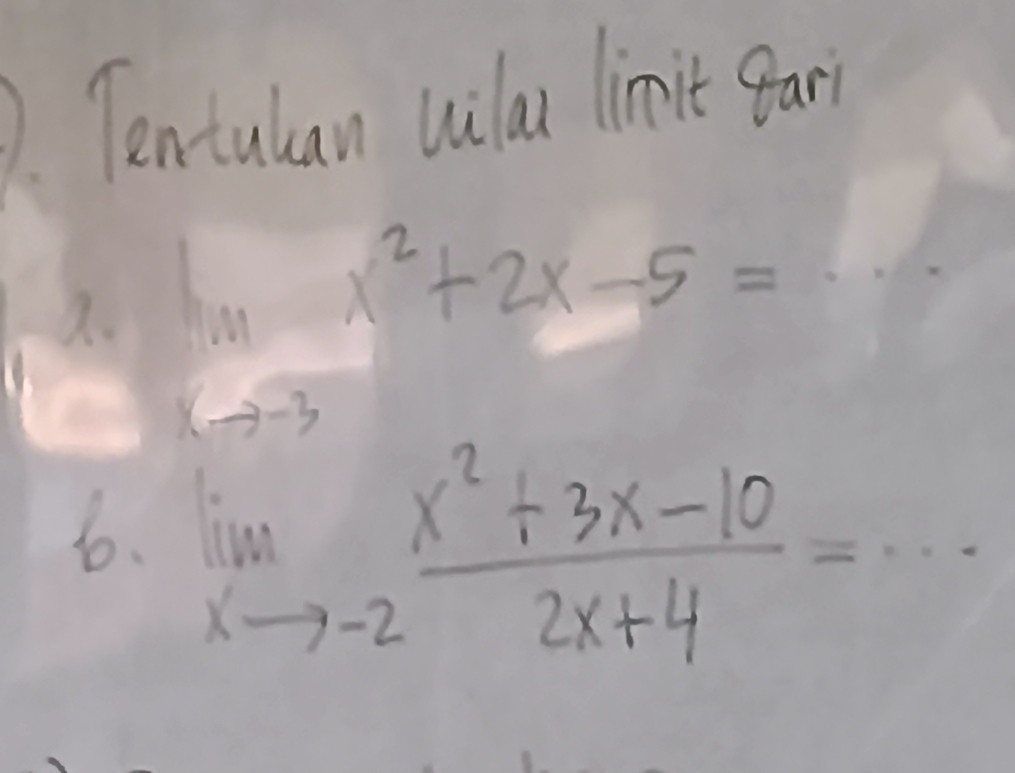 ). Tentukan nilai limit dari
a. lim x² + 2x - 5 = ....
x → -3
b. lim x² + 3x - 10 / 2x + 4 = ....
x → -2